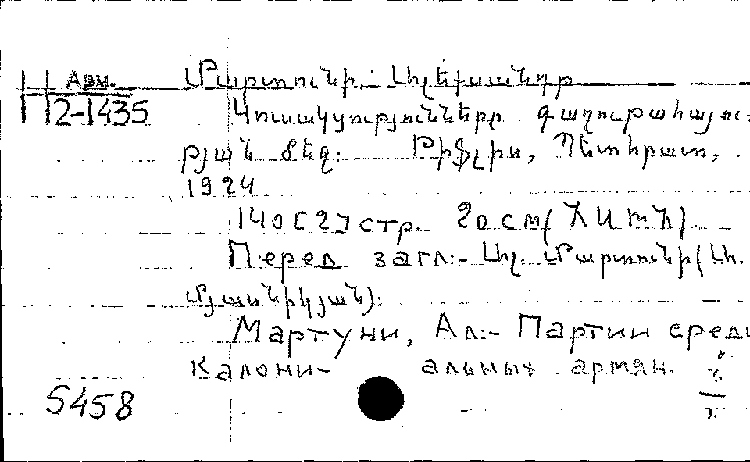 Арм.
Մարտունի Ալեքսանդր
2-1435
Կուսակցությունները գաղութահայու-
թյան մեջ: Թիֆլիս, Պետհրատ,
1924
140 [2] стр. 20 см (ԽՍՖԽ)
Перед загл.- Ալ. Մարտունի (Ալ.
Մյասնիկյան):
Мартуни, Ал.- Партии среди
Калони- альных армян.
5458